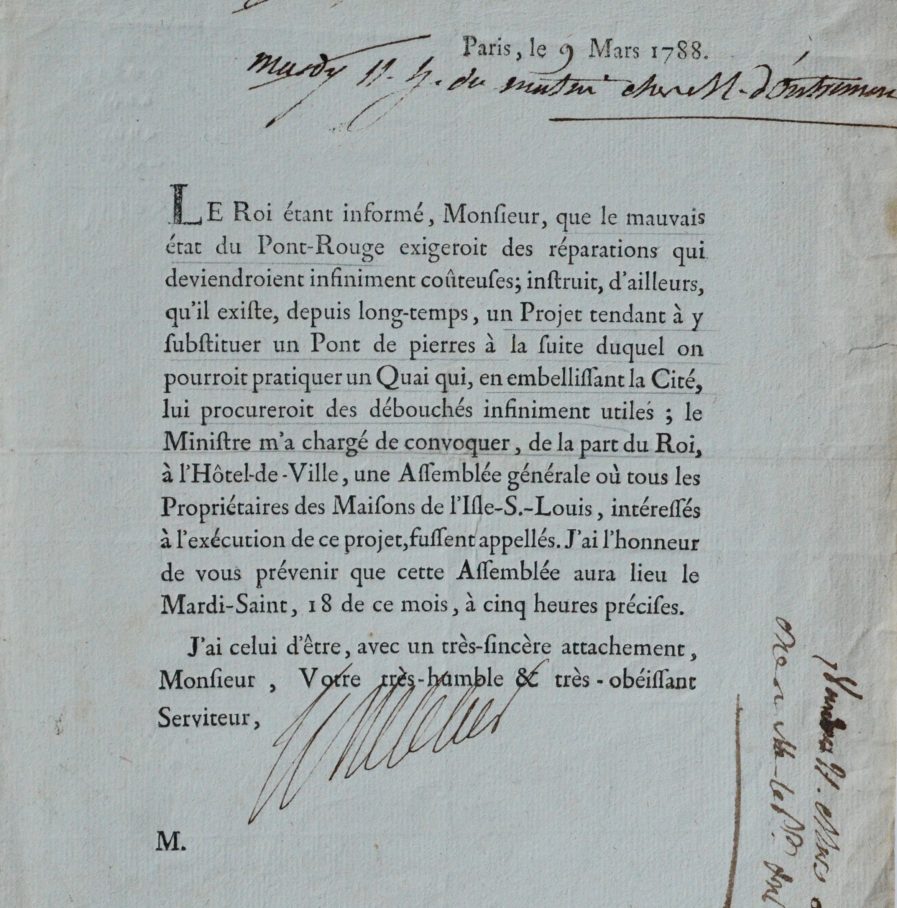 Paris, le 9 Mars 1788.
du matin chez M. d'Outremon
LE Roi étant informé, Monſieur, que le mauvais
état du Pont-Rouge exigeroit des réparations qui
deviendroient infiniment coûteuſes; inſtruit, d'ailleurs,
qu'il exiſte, depuis long-temps, un Projet tendant à y
ſubſtituer un Pont de pierres à la ſuite duquel on
pourroit pratiquer un Quai qui, en embelliſſant la Cité,
lui procureroit des débouchés infiniment utiles ; le
Miniſtre m'a chargé de convoquer, de la part du Roi,
à l'Hôtel-de-Ville, une Aſſemblée générale où tous les
Propriétaires des Maiſons de l'Iſle-S.-Louis, intéreſſés
à l'exécution de ce projet, fuſſent appellés. J'ai l'honneur
de vous prévenir que cette Aſſemblée aura lieu le
Mardi-Saint, 18 de ce mois, à cinq heures préciſes.
J'ai celui d'être, avec un très-ſincère attachement,
Monſieur, Votre très-humble & très-obéiſſant
Serviteur,
M.